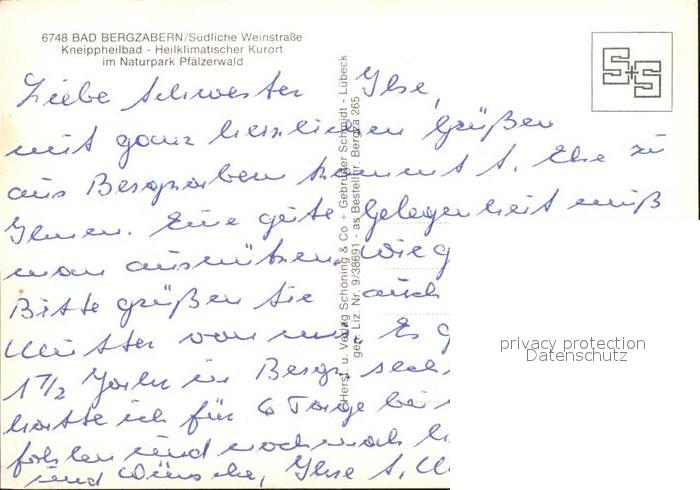 6748 BAD BERGZABERN/Südliche Weinstraße
Kneippheilbad - Heilklimatischer Kurort
im Naturpark Pfälzerwald
S+S
Liebe Schwester Ilse,
mit ganz herzlichen Grüßen
aus Bergzabern kommt S. Else zu
Ihnen. Eine gute Gelegenheit muß
man ausnützen. Wie g
Bitte grüßen Sie auch
Mutter von mir. Es g
1 1/2 Jahr in Bergz.
hatte ich für 6 Tage bei
und nochmals
und Wünsche, Ihre S.
Herst. u. Verlag Schöning & Co + Gebrüder Schmidt - Lübeck
ges. Liz. Nr. 9/38691 - as Bestellnr. Bergza 265
privacy protection
Datenschutz